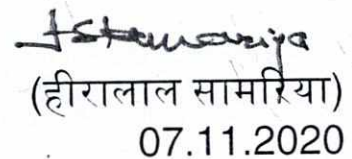 (हीरालाल सामरिया)
07.11.2020